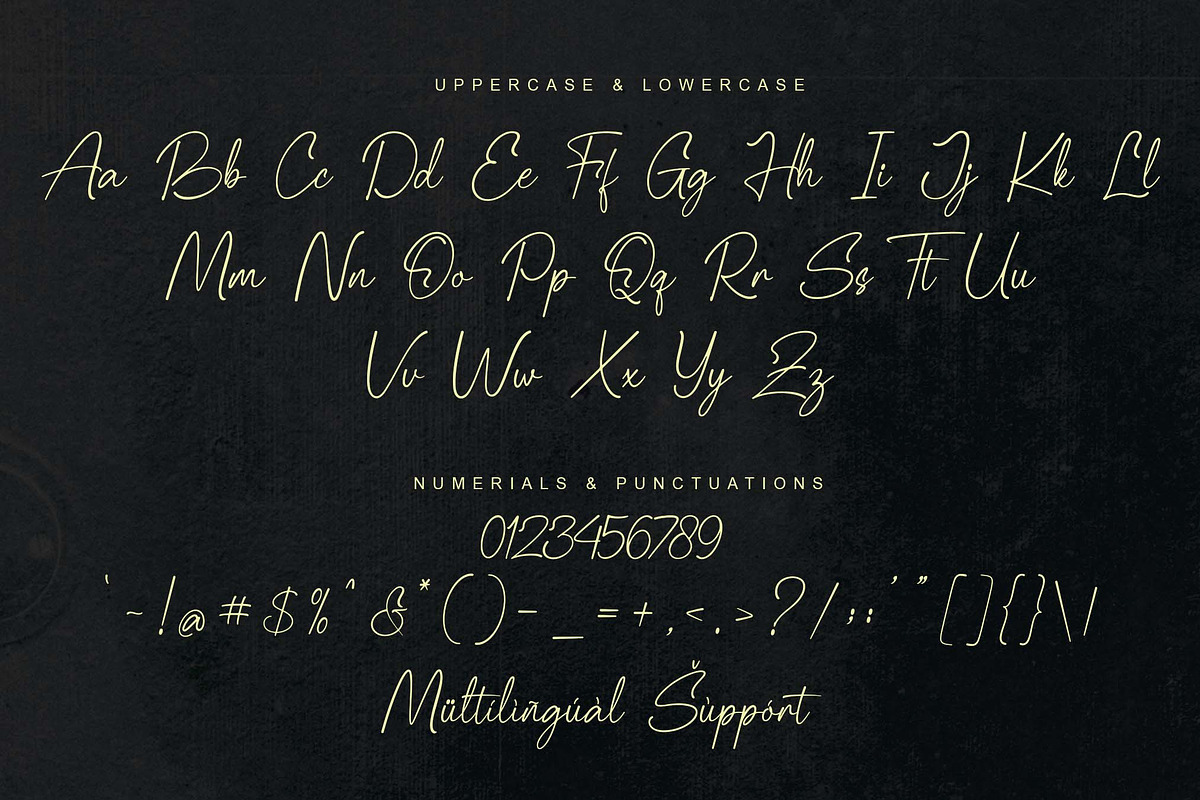 UPPERCASE & LOWERCASE
Aa Bb Cc Dd Ee Ff Gg Hh Ii Jj Kk Ll
Mm Nn Oo Pp Qq Rr Ss Tt Uu
Vv Ww Xx Yy Zz
NUMERIALS & PUNCTUATIONS
0123456789
` ~ ! @ # $ % ^ & * ( ) - _ = + , < . > ? / ; : ' " [ ] { } \ |
Múltílìñgúàl Šùppórt